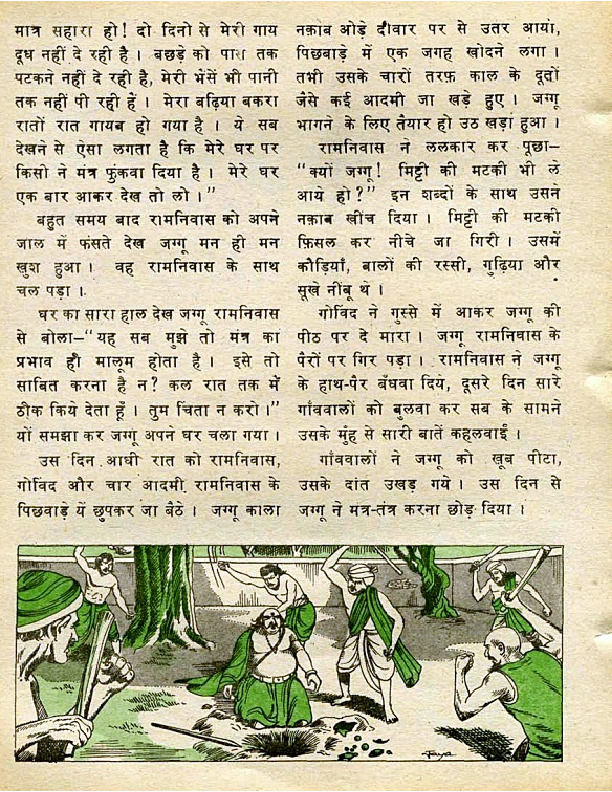 मात्र सहारा हो! दो दिनो से मेरी गाय
दूध नहीं दे रही है। बछड़े को पास तक
पटकने नहीं दे रही है, मेरी भैंसें भी पानी
तक नहीं पी रही हैं। मेरा बढ़िया बकरा
रातों रात गायब हो गया है। ये सब
देखने से ऐसा लगता है कि मेरे घर पर
किसी ने मंत्र फुंकवा दिया है। मेरे घर
एक बार आकर देख तो लो।”
बहुत समय बाद रामनिवास को अपने
जाल में फंसते देख जग्गू मन ही मन
खुश हुआ। वह रामनिवास के साथ
चल पड़ा।
घर का सारा हाल देख जग्गू रामनिवास
से बोला–“यह सब मुझे तो मंत्र का
प्रभाव ही मालूम होता है। इसे तो
साबित करना है न? कल रात तक में
ठीक किये देता हूँ। तुम चिंता न करो।”
यों समझा कर जग्गू अपने घर चला गया।
उस दिन आधी रात को रामनिवास,
गोविंद और चार आदमी रामनिवास के
पिछवाड़े यें छुपकर जा बैठे। जग्गू काला
नक़ाब ओड़े दीवार पर से उतर आया,
पिछवाड़े में एक जगह खोदने लगा।
तभी उसके चारों तरफ़ काल के दूतों
जैसे कई आदमी जा खड़े हुए। जग्गू
भागने के लिए तैयार हो उठ खड़ा हुआ।
रामनिवास ने ललकार कर पूछा–
“क्यों जग्गू! मिट्टी की मटकी भी ले
आये हो?” इन शब्दों के साथ उसने
नक़ाब खींच दिया। मिट्टी की मटकी
फ़िसल कर नीचे जा गिरी। उसमें
कौड़ियाँ, बालों की रस्सी, गुढ़िया और
सूखे नीबू थे।
गोविंद ने गुस्से में आकर जग्गू की
पीठ पर दे मारा। जग्गू रामनिवास के
पैरों पर गिर पड़ा। रामनिवास ने जग्गू
के हाथ-पैर बँधवा दिये, दूसरे दिन सारे
गाँववालों को बुलवा कर सब के सामने
उसके मुंह से सारी बातें कहलवाईं।
गाँववालों ने जग्गू को खूब पीटा,
उसके दांत उखड़ गये। उस दिन से
जग्गू ने मत्र-तंत्र करना छोड़ दिया।